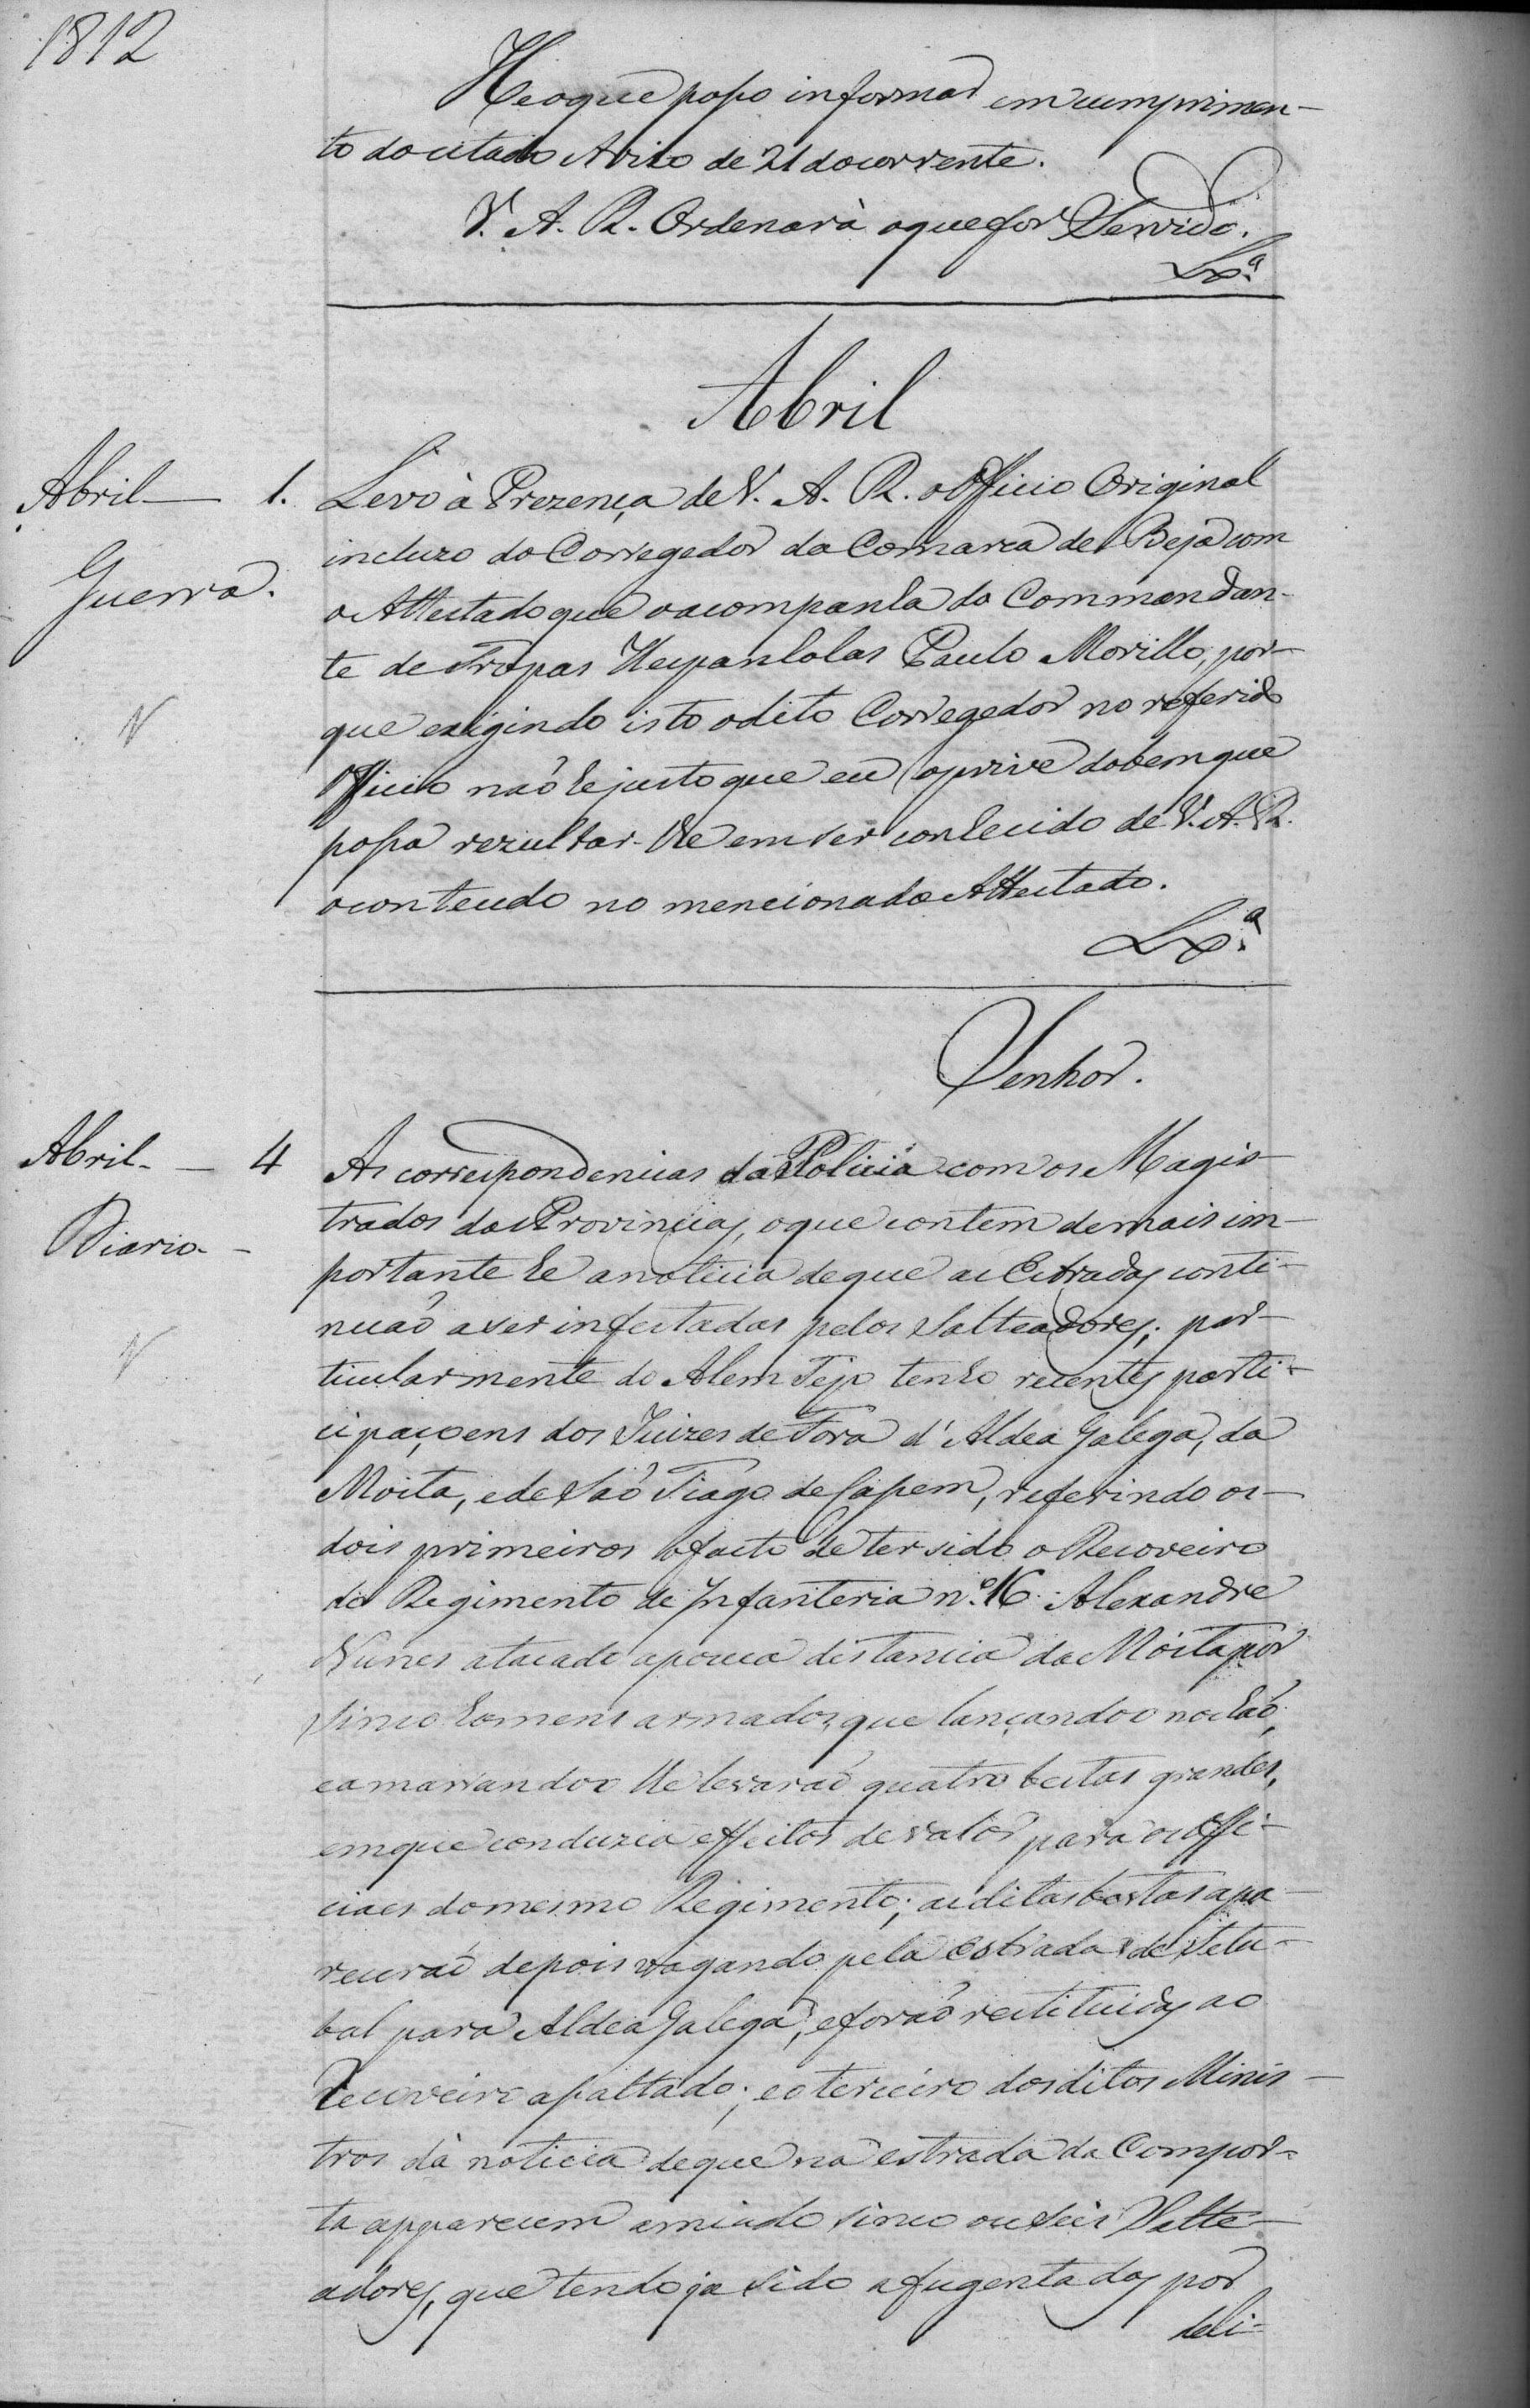 1812
He o que posso informar em cumprimen-
to do citado Avizo de 21 do corrente.
V. A. R. Ordenarà o que for Servido.
Lxª
Abril
Abril — 1. Levo à Prezença de V. A. R. o Officio Original
incluzo do Corregedor da Comarca de Beja com
Guerra. o Attestado que o acompanha do Comman dan-
te de Tropas Hespanholas Paulo Morillo, por-
que exigindo isto o dito Corregedor no referido
N
Officio naõ he justo que eu o prive do bem que
possa rezultar-lhe em ser conhecido de V. A. R.
o conteudo no mencionado Attestado.
Lxª
Senhor.
Abril - — 4 As correspondencias da Policia com os Magis-
trados das Provincias, o que contem de mais im-
Diario - portante he a noticia de que as Estradas conti-
nuaõ a ser infestadas pelos Salteadores; par-
N
ticularmente do Alem Tejo tenho recentes parti-
cipaçoens dos Juizes de Fora d'Aldea Galega, da
Moita, e de Saõ Tiago de Cassem, referindo os
dois primeiros o facto de ter sido o Recoveiro
do Regimento de Infanteria n.º 16 Alexandre
Nunes atacado a pouca distancia da Moita por
sinco homens armados, que lançando o no chaõ,
e amarrando o lhe levaraõ quatro bestas grandes,
em que conduzia effeitos de valor para os Offi-
ciaes do mesmo Regimento; as ditas bestas apa-
receraõ depois vagando pela Estrada de Setu-
bal para Aldea Galega, e foraõ restituidas ao
Recoveiro assaltado; e o terceiro dos ditos Minis-
tros dà noticia de que na estrada da Compor-
ta apparecem amiudo sinco ou seis Salte-
adores, que tendo ja sido afugentados por
deli-